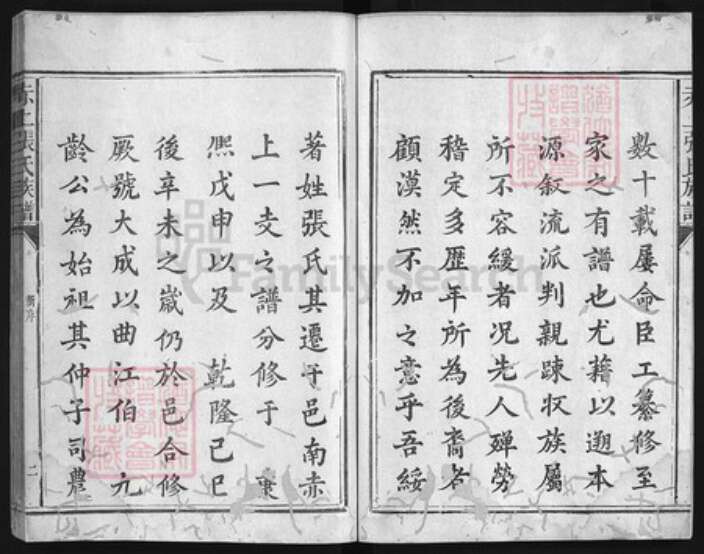 數十載屢命臣工纂修至
家之有譜也尤藉以遡本
源叙流派判親踈収族屬
所不容緩者況先人殫勞
稽定多歷年所為後裔者
顧漠然不加之意乎吾綏
著姓張氏其遷于邑南赤
上一支之譜分修于 康
熙戊申以及 乾隆己巳
後辛未之嵗仍於邑合修
厥號大成以曲江伯 九
齡公為始祖其仲子司農
張氏族譜
新序
二
FamilySearch